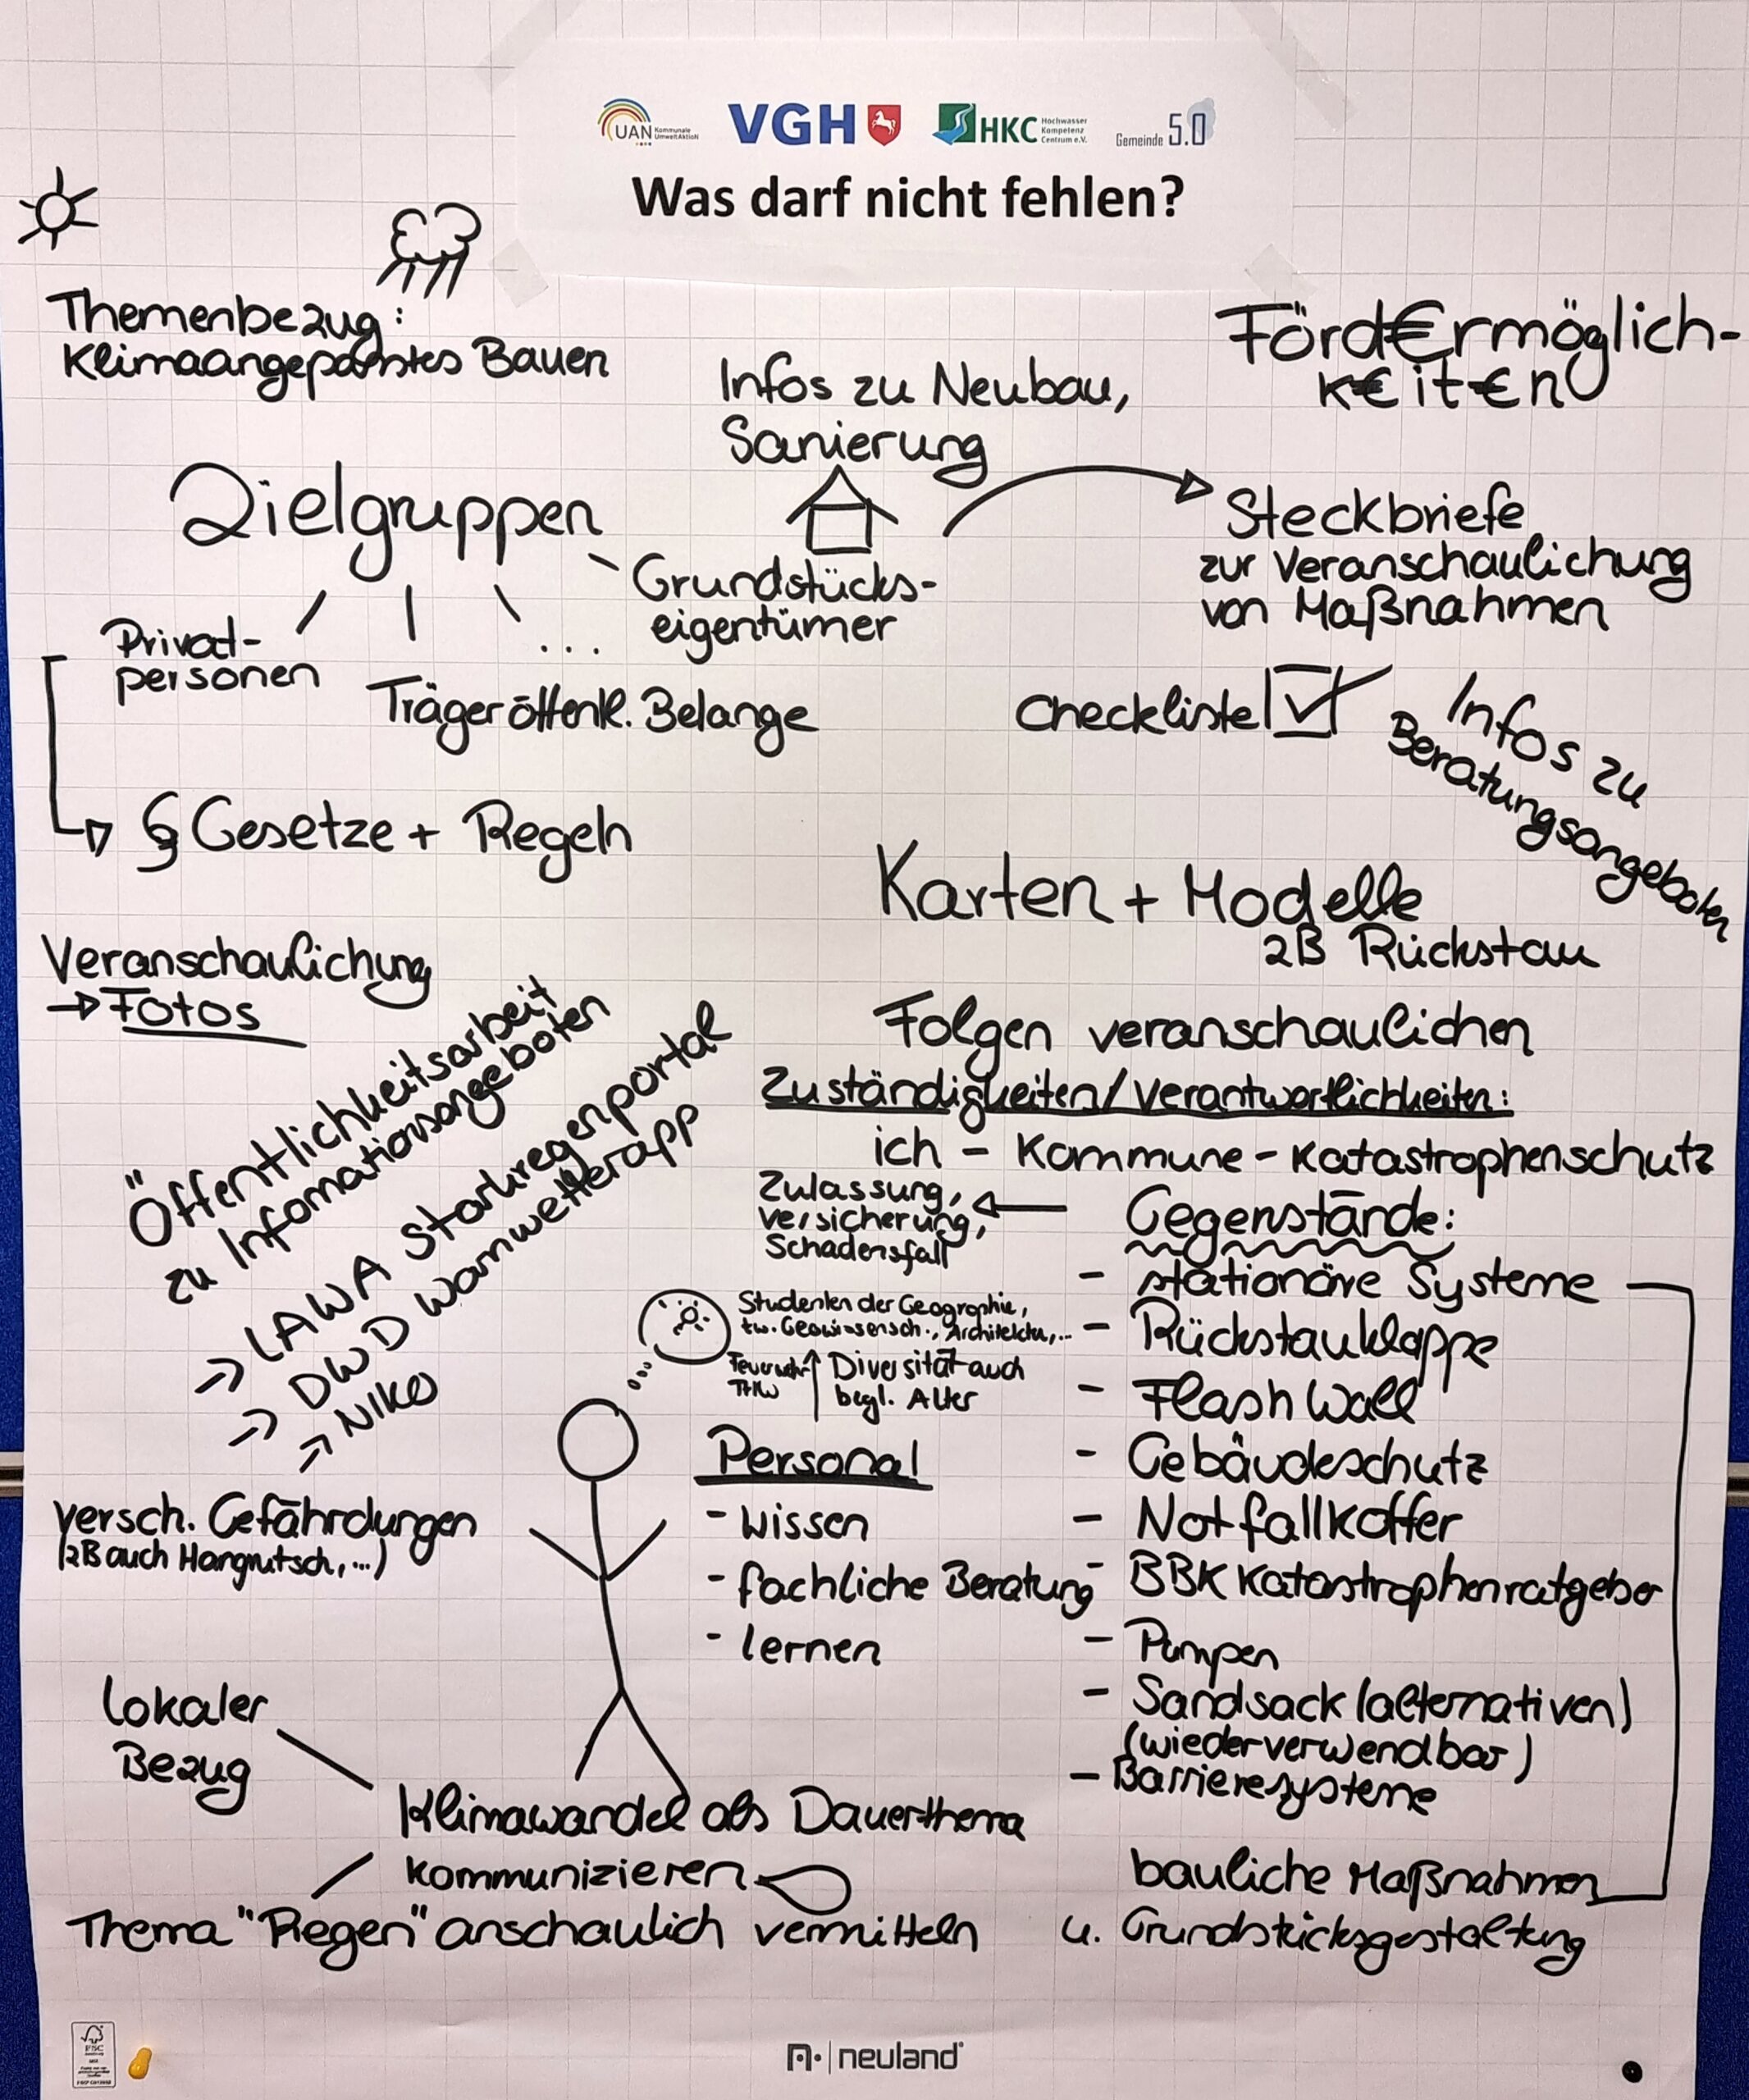 UAN Kommunale UmweltAktioN
VGH
HKC Hochwasser Kompetenz Centrum e.V.
Gemeinde 5.0
Was darf nicht fehlen?
Themenbezug:
Klimaangepasstes Bauen
Infos zu Neubau,
Sanierung
Förd€rmöglich-
k€it€n
Zielgruppen
Grundstücks-
eigentümer
Privat-
personen
...
Träger öffentl. Belange
Steckbriefe
zur Veranschaulichung
von Maßnahmen
Checkliste
Infos zu
Beratungsangeboten
§ Gesetze + Regeln
Karten + Modelle
zB Rückstau
Veranschaulichung
→ Fotos
Folgen veranschaulichen
Öffentlichkeitsarbeit
zu Infomationsangeboten
→ LAWA Starkregenportal
→ DWD Warnwetterapp
→ NIKO
Zuständigkeiten/Verantwortlichkeiten:
ich – Kommune – Katastrophenschutz
Zulassung,
Versicherung,
Schadensfall
Gegenstände:
- stationäre Systeme
- Rückstauklappe
- Flash Wall
- Gebäudeschutz
- Notfallkoffer
- BBK Katastrophenratgeber
- Pumpen
- Sandsack (alternativen)
(wiederverwendbar)
- Barrieresysteme
bauliche Maßnahmen
u. Grundstücksgestaltung
Studenten der Geographie,
tw. Geowissensch., Architektur,...
Feuerwehr
THW
Diversität auch
bezgl. Alter
Personal
- Wissen
- fachliche Beratung
- lernen
versch. Gefährdungen
(zB auch Hangrutsch,...)
Lokaler
Bezug
Klimawandel als Dauerthema
kommunizieren
Thema "Regen" anschaulich vermitteln
FSC
neuland